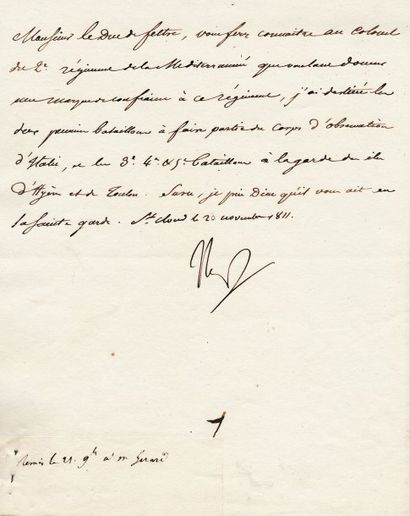 Monsieur le Duc de feltre, vous ferez connaitre au Colonel
du 2e régiment de la Mediterrannée que voulant donner
une marque de confiance à ce régiment, j'ai destiné les
deux premiers bataillons à faire partie du corps d'observation
d'Italie, et les 3e. 4e. & 5e. bataillons à la garde des iles
d'Hyères et de Toulon. Sur ce, je prie Dieu qu'il vous ait en
sa Sainte garde. St. Cloud le 20 novembre 1811.
Nap
Remis le 21. 9bre à m Gerard